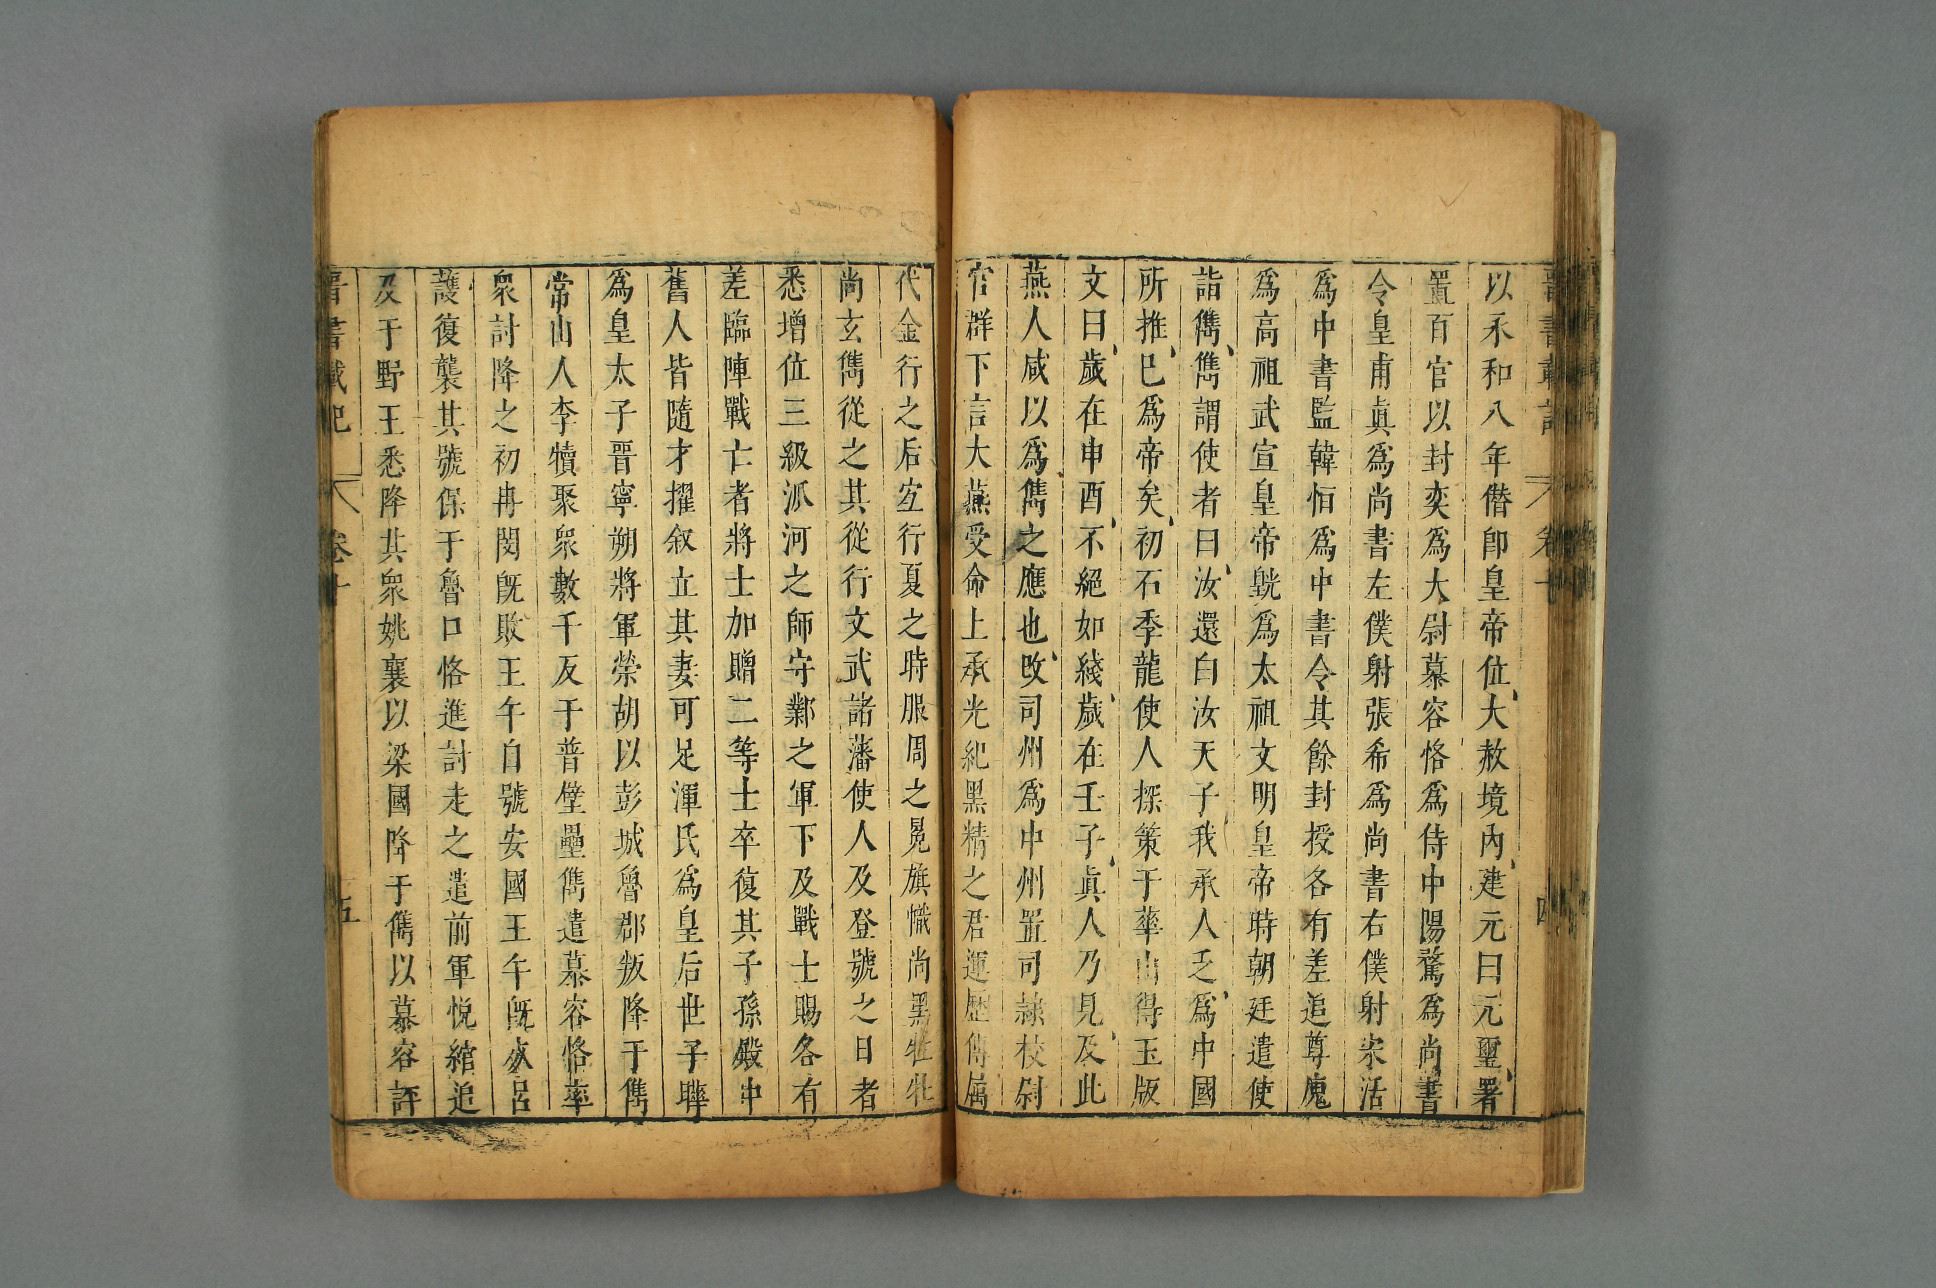 晉書載記 卷十 四
以永和八年僭卽皇帝位大赦境內建元曰元璽署
置百官以封奕爲大尉慕容恪爲侍中陽騖爲尚書
令皇甫眞爲尚書左僕射張希爲尚書右僕射宋活
爲中書監韓恒爲中書令其餘封授各有差追尊廆
爲高祖武宣皇帝皝爲太祖文明皇帝時朝廷遣使
詣儁儁謂使者曰汝還白汝天子我承人乏爲中國
所推巳爲帝矣初石季龍使人探策于華山得玉版
文曰歲在申酉不絕如綫歲在壬子眞人乃見及此
燕人咸以爲儁之應也攺司州爲中州置司隷校尉
官群下言大燕受命上承光紀黑精之君運歷傳屬
代金行之后宐行夏之時服周之冕旗幟尚黑牲牡
尚玄儁從之其從行文武諸藩使人及登號之日者
悉增位三級泒河之師守鄴之軍下及戰士賜各有
差臨陣戰亡者將士加贈二等士卒復其子孫殿中
舊人皆隨才擢叙立其妻可足渾氏爲皇后世子曄
爲皇太子晉寧朔將軍榮胡以彭城魯郡叛降于儁
常山人李犢聚衆數千反于普壁壘儁遣慕容恪率
衆討降之初冉閔旣敗王午自號安國王午旣死呂
護復襲其號保于魯口恪進討走之遣前軍悅綰追
及于野王悉降其衆姚襄以梁國降于儁以慕容評
晉書載記 卷十 五